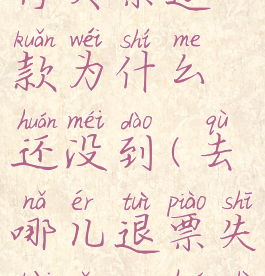 kuǎn wéi shí me
款为什么
huán méi dào qù
还没到(去
nǎ ér tuì piào shī
哪儿退票失